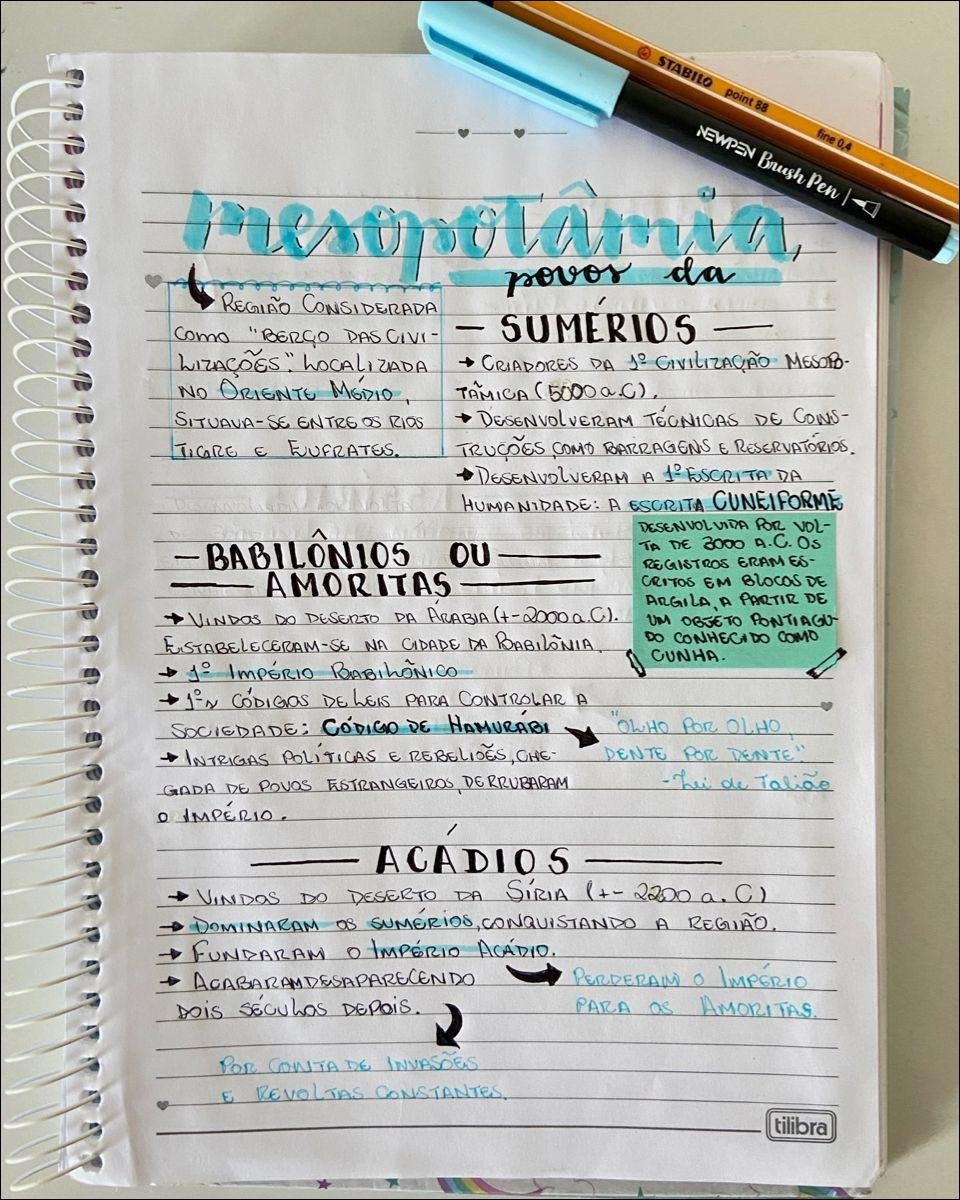 STABILO point 88 fine 0,4
NEWPEN Brush Pen
mesopotâmia,
povos da
REGIÃO CONSIDERADA
COMO "BERÇO DAS CIVI-
LIZAÇÕES". LOCALIZADA
NO ORIENTE MÉDIO,
SITUAVA-SE ENTRE OS RIOS
TIGRE E EUFRATES.
— SUMÉRIOS —
→ CRIADORES DA 1º CIVILIZAÇÃO MESOPO-
TÂMICA (5000 a.C).
→ DESENVOLVERAM TÉCNICAS DE CONS-
TRUÇÕES COMO BARRAGENS E RESERVATÓRIOS.
→ DESENVOLVERAM A 1º ESCRITA DA
HUMANIDADE: A ESCRITA CUNEIFORME
DESENVOLVIDA POR VOL-
TA DE 3000 A.C. OS
REGISTROS ERAM ES-
CRITOS EM BLOCOS DE
ARGILA, A PARTIR DE
UM OBJETO PONTIAGU-
DO CONHECIDO COMO
CUNHA.
— BABILÔNIOS OU —
— AMORITAS —
→ VINDOS DO DESERTO DA ÁRABIA (+- 2000 a.C).
ESTABELECERAM-SE NA CIDADE DA BABILÔNIA.
→ 1º IMPÉRIO BABILÔNICO
→ 1ºs CÓDIGOS DE LEIS PARA CONTROLAR A
SOCIEDADE: CÓDIGO DE HAMURÁBI
"OLHO POR OLHO,
DENTE POR DENTE"
- Lei de Talião
→ INTRIGAS POLÍTICAS E REBELIÕES, CHE-
GADA DE POVOS ESTRANGEIROS, DERRUBARAM
O IMPÉRIO.
— ACÁDIOS —
→ VINDOS DO DESERTO DA SÍRIA (+- 2200 a.C)
→ DOMINARAM OS SUMÉRIOS, CONQUISTANDO A REGIÃO.
→ FUNDARAM O IMPÉRIO ACÁDIO.
→ ACABARAM DESAPARECENDO
DOIS SÉCULOS DEPOIS.
PERDERAM O IMPÉRIO
PARA OS AMORITAS.
POR CONTA DE INVASÕES
E REVOLTAS CONSTANTES.
tilibra